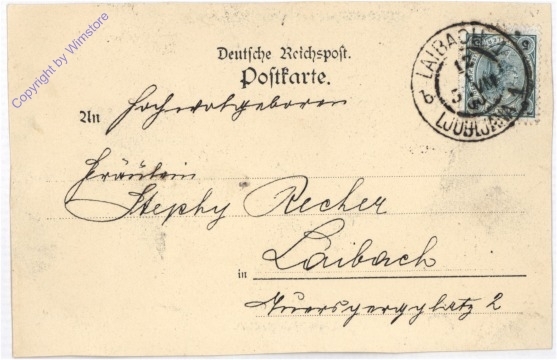 Copyright by Wimstore
Deutsche Reichspost.
Postkarte.
LAIBACH
LJUBLJANA
An Hochwohlgeboren
Fräulein
Stephy Recher
in Laibach
Auerspergplatz 2